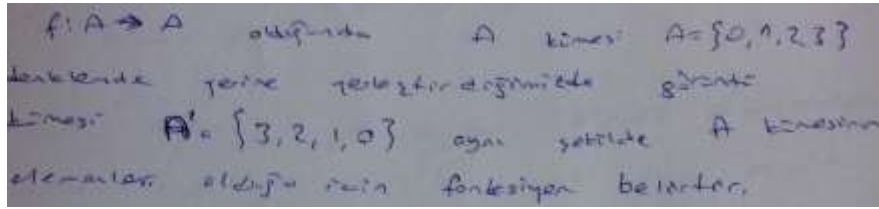 f: A → A olduğunda A kümesi A={0,1,2,3}
denklende yerine yerleştirdiğimizde görüntü
kümesi A'= {3,2,1,0} aynı şekilde A kümesinin
elemanları olduğu için fonksiyon belirtir.